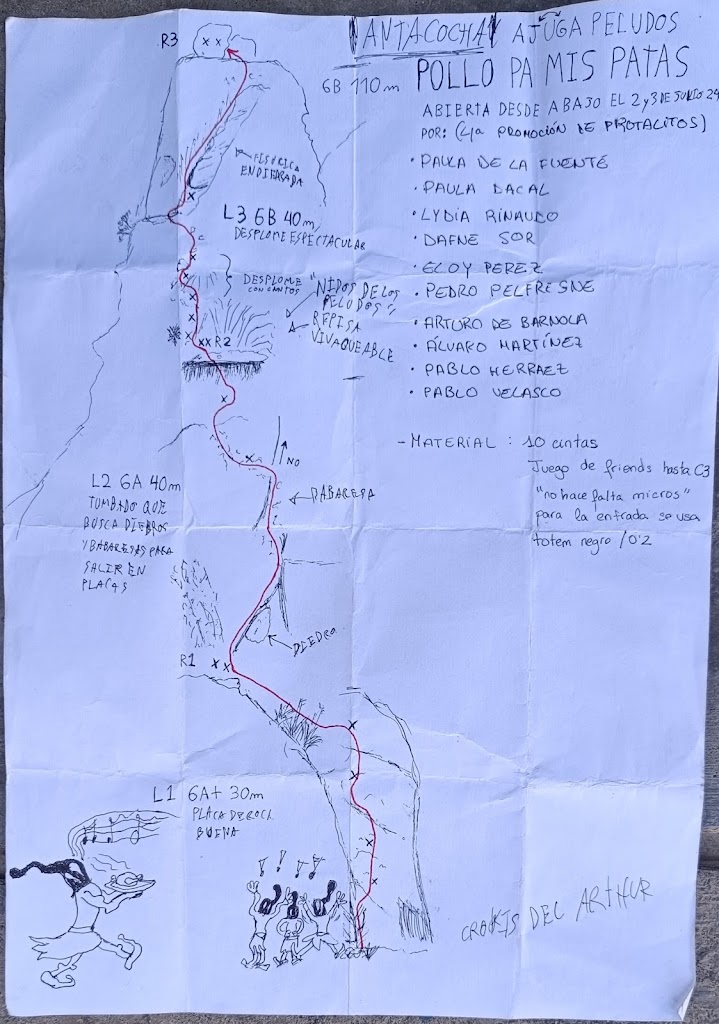 ANTACOCHA AJUGA PELUDOS
6B 110m POLLO PA MIS PATAS
ABIERTA DESDE ABAJO EL 2 y 3 DE JULIO 24
POR: (4ª PROMOCIÓN DE PIOTALITOS)
· PAULA DE LA FUENTE
· PAULA DACAL
· LYDIA RINAUDO
· DAFNE SOR
· ELOY PEREZ
· PEDRO PELFRESNE
· ARTURO DE BARNOLA
· ÁLVARO MARTÍNEZ
· PABLO HERRAEZ
· PABLO VELASCO
- MATERIAL : 10 cintas
Juego de friends hasta C3
"no hace falta micros"
para la entrada se usa
totem negro /0'2
R3
FISÚRICA
ENDIEDRADA
L3 6B 40m,
DESPLOME ESPECTACULAR
DESPLOME
CON CANTOS
"NIDOS DE LOS
PELUDOS"
REPISA
VIVAQUEABLE
R2
NO
L2 6A 40m
TUMBADO QUE
BUSCA DIEDROS
Y BABARESAS PARA
SALIR EN
PLACAS
BABARESA
DIEDRO
R1
L1 6A+ 30m
PLACA DE ROCA
BUENA
! ! ! !
CROKIS DEL ARTHUR